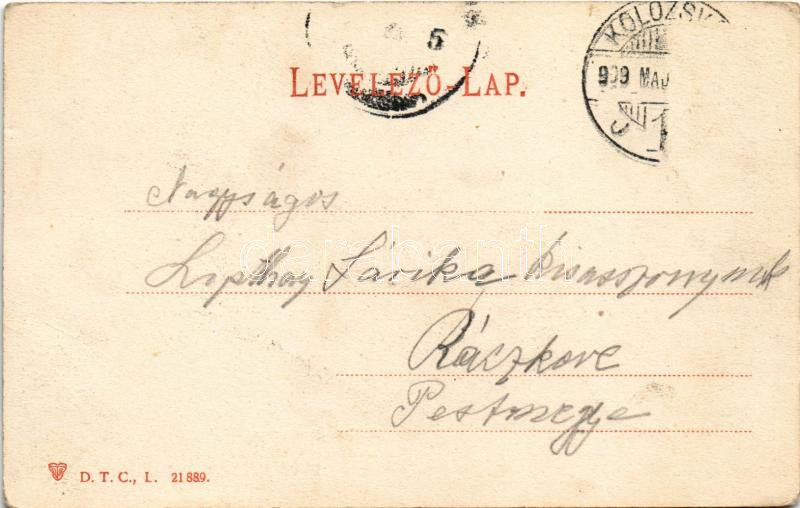 5
KOLOZSV
LEVELEZŐ-LAP.
999 MAJ
C
Nagyságos
Lipthay Sárika kisasszonynak
Ráczkeve
Pestmegye
D. T. C., L. 21889.